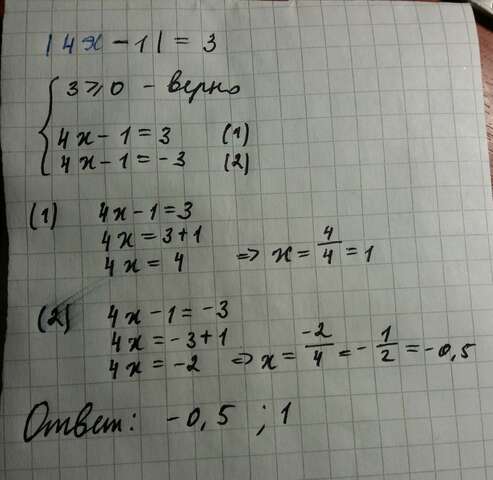 |4x - 1| = 3
3 ⩾ 0 - верно
4x - 1 = 3 (1)
4x - 1 = -3 (2)
(1) 4x - 1 = 3
4x = 3 + 1
4x = 4 => x = 4/4 = 1
(2) 4x - 1 = -3
4x = -3 + 1
4x = -2 => x = -2/4 = -1/2 = -0,5
Ответ: -0,5 ; 1